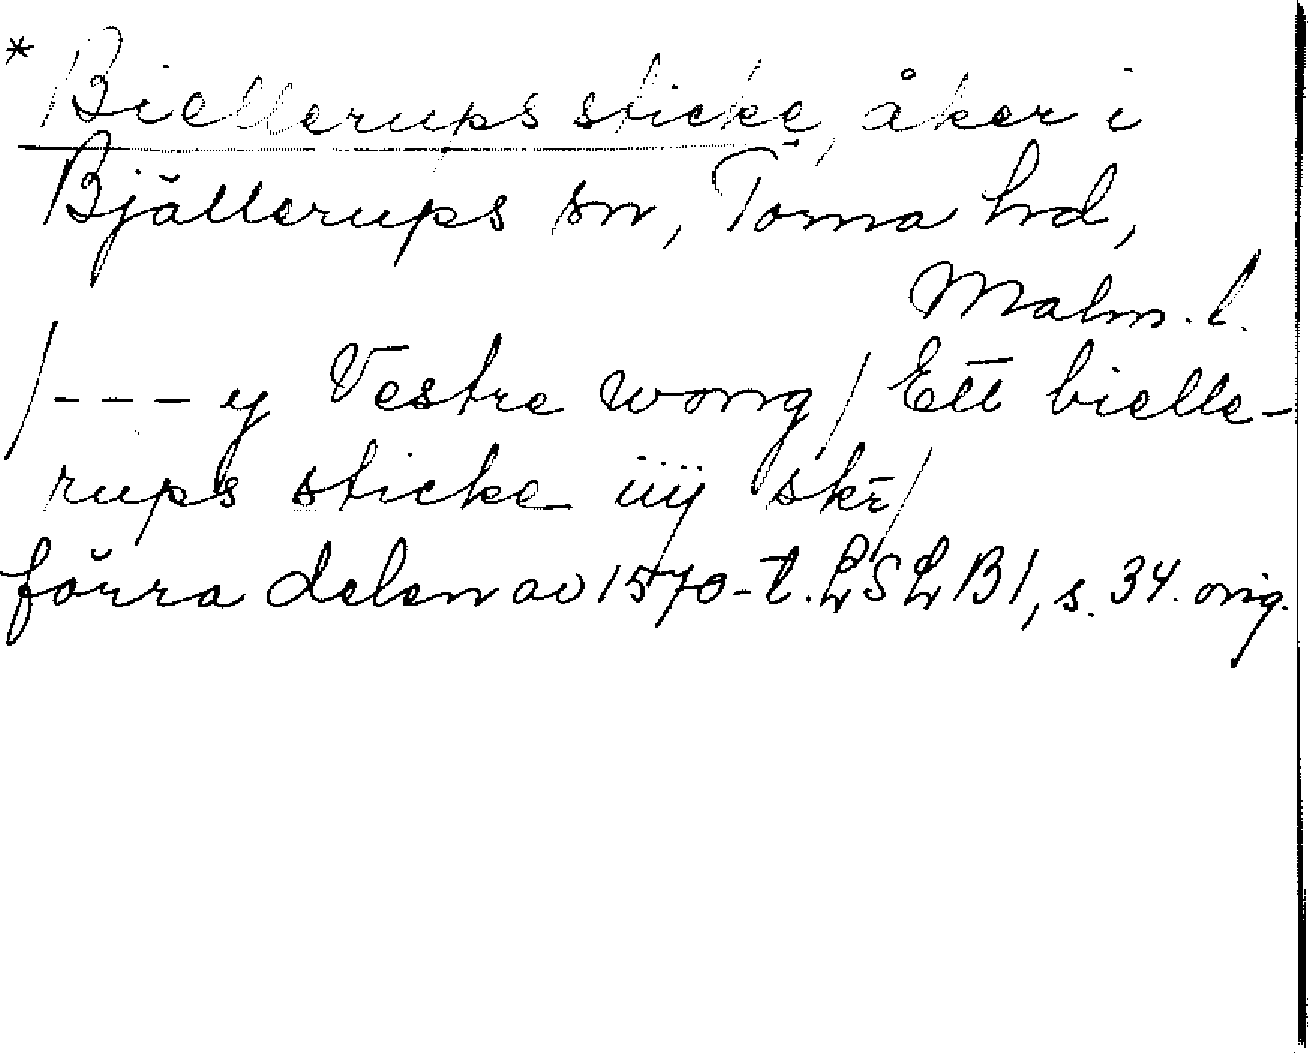 * Biellerups sticke, åker i
Bjällerups sn, Torna hd,
Malm. l.
/---y Vestre wong/ Ett bielle-
rups sticke iiij skr̄/
förra delen av 1570-t. LSLB1, s. 34. orig.